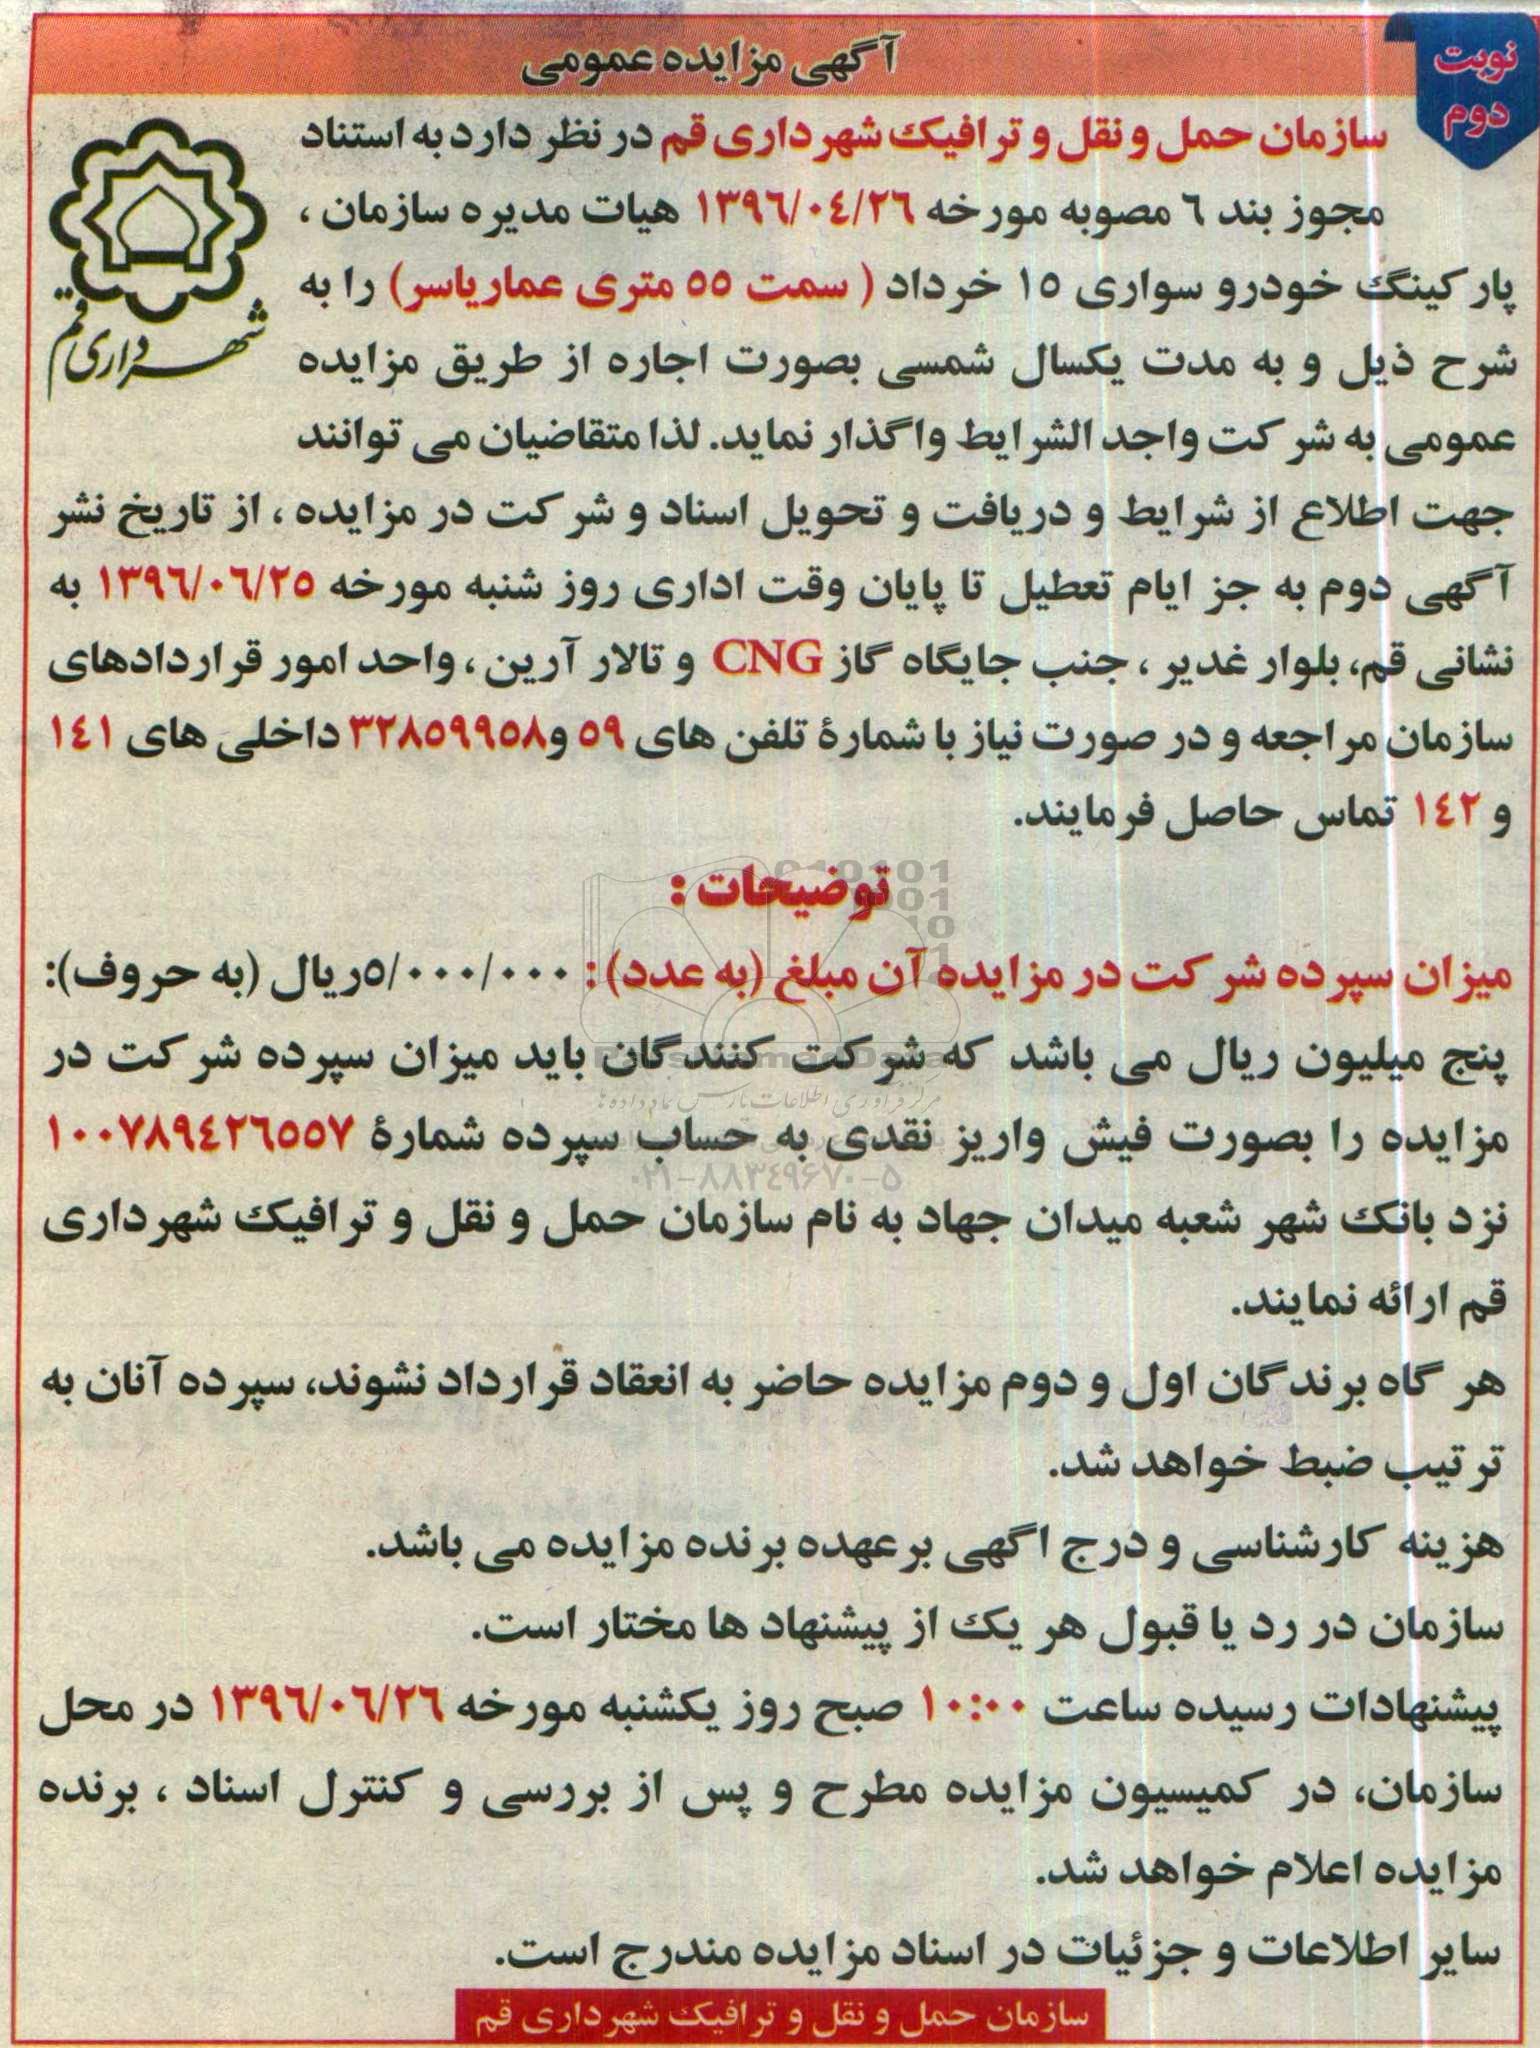 نوبت
دوم
آگهی مزایده عمومی
سازمان حمل و نقل و ترافیک شهرداری قم در نظر دارد به استناد
مجوز بند ٦ مصوبه مورخه ١٣٩٦/٠٤/٢٦ هیات مدیره سازمان ،
پارکینگ خودرو سواری ١٥ خرداد ( سمت ٥٥ متری عماریاسر) را به
شرح ذیل و به مدت یکسال شمسی بصورت اجاره از طریق مزایده
عمومی به شرکت واجد الشرایط واگذار نماید. لذا متقاضیان می توانند
جهت اطلاع از شرایط و دریافت و تحویل اسناد و شرکت در مزایده ، از تاریخ نشر
آگهی دوم به جز ایام تعطیل تا پایان وقت اداری روز شنبه مورخه ١٣٩٦/٠٦/٢٥ به
نشانی قم، بلوار غدیر ، جنب جایگاه گاز CNG و تالار آرین ، واحد امور قراردادهای
سازمان مراجعه و در صورت نیاز با شمارۀ تلفن های ٥٩ و٣٢٨٥٩٩٥٨ داخلی های ١٤١
و ١٤٢ تماس حاصل فرمایند.
شهرداری قم
توضیحات :
میزان سپرده شرکت در مزایده آن مبلغ (به عدد): ٥/٠٠٠/٠٠٠ریال (به حروف):
پنج میلیون ریال می باشد که شرکت کنندگان باید میزان سپرده شرکت در
مزایده را بصورت فیش واریز نقدی به حساب سپرده شمارۀ ١٠٠٧٨٩٤٢٦٥٥٧
نزد بانک شهر شعبه میدان جهاد به نام سازمان حمل و نقل و ترافیک شهرداری
قم ارائه نمایند.
هر گاه برندگان اول و دوم مزایده حاضر به انعقاد قرارداد نشوند، سپرده آنان به
ترتیب ضبط خواهد شد.
هزینه کارشناسی و درج اگهی برعهده برنده مزایده می باشد.
سازمان در رد یا قبول هر یک از پیشنهاد ها مختار است.
پیشنهادات رسیده ساعت ١٠:٠٠ صبح روز یکشنبه مورخه ١٣٩٦/٠٦/٢٦ در محل
سازمان، در کمیسیون مزایده مطرح و پس از بررسی و کنترل اسناد ، برنده
مزایده اعلام خواهد شد.
سایر اطلاعات و جزئیات در اسناد مزایده مندرج است.
سازمان حمل و نقل و ترافیک شهرداری قم
۰۲۱-۸۸۳۴۹۶۷۰-۵